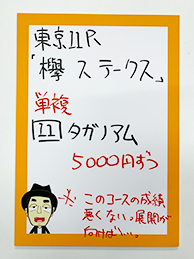 東京11R
「欅ステークス」
単複
11 タガノアム
5000円ずつ
このコースの成績
悪くないっ展開が
向けば…。